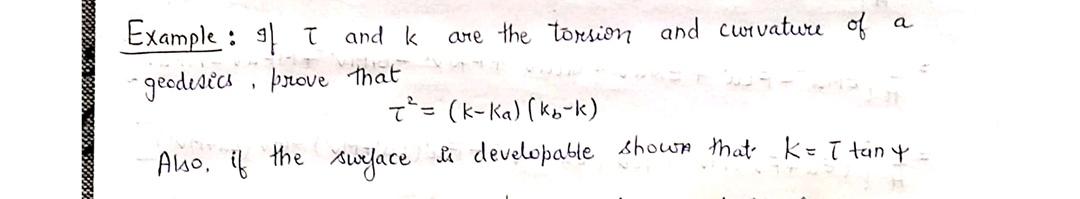 Example : If τ and k are the torsion and curvature of a
geodesics, prove that
τ² = (k-ka) (kb-k)
Also, if the surface is developable shown that k = τ tan ψ